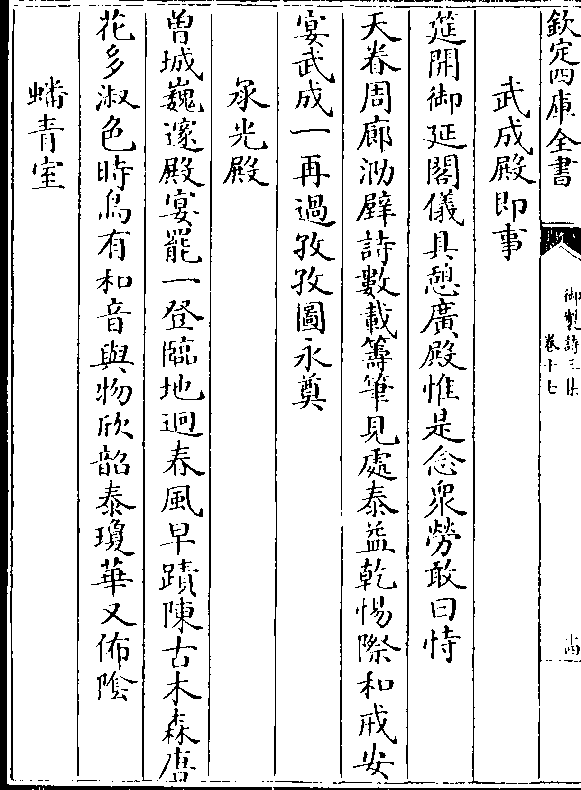 欽定四庫全書
御製詩三集
卷十七
武成殿即事
筵開御延閣儀具憩廣殿惟是念衆勞敢曰恃
天眷周廊泐壁詩數載籌筆見處泰益乾惕際和戒安
宴武成一再過孜孜圖永奠
承光殿
曽城巍邃殿宴罷一登臨地迥春風早蹟陳古木森唐
花多淑色時鳥有和音與物欣韶泰瓊華又佈陰
蟠青室